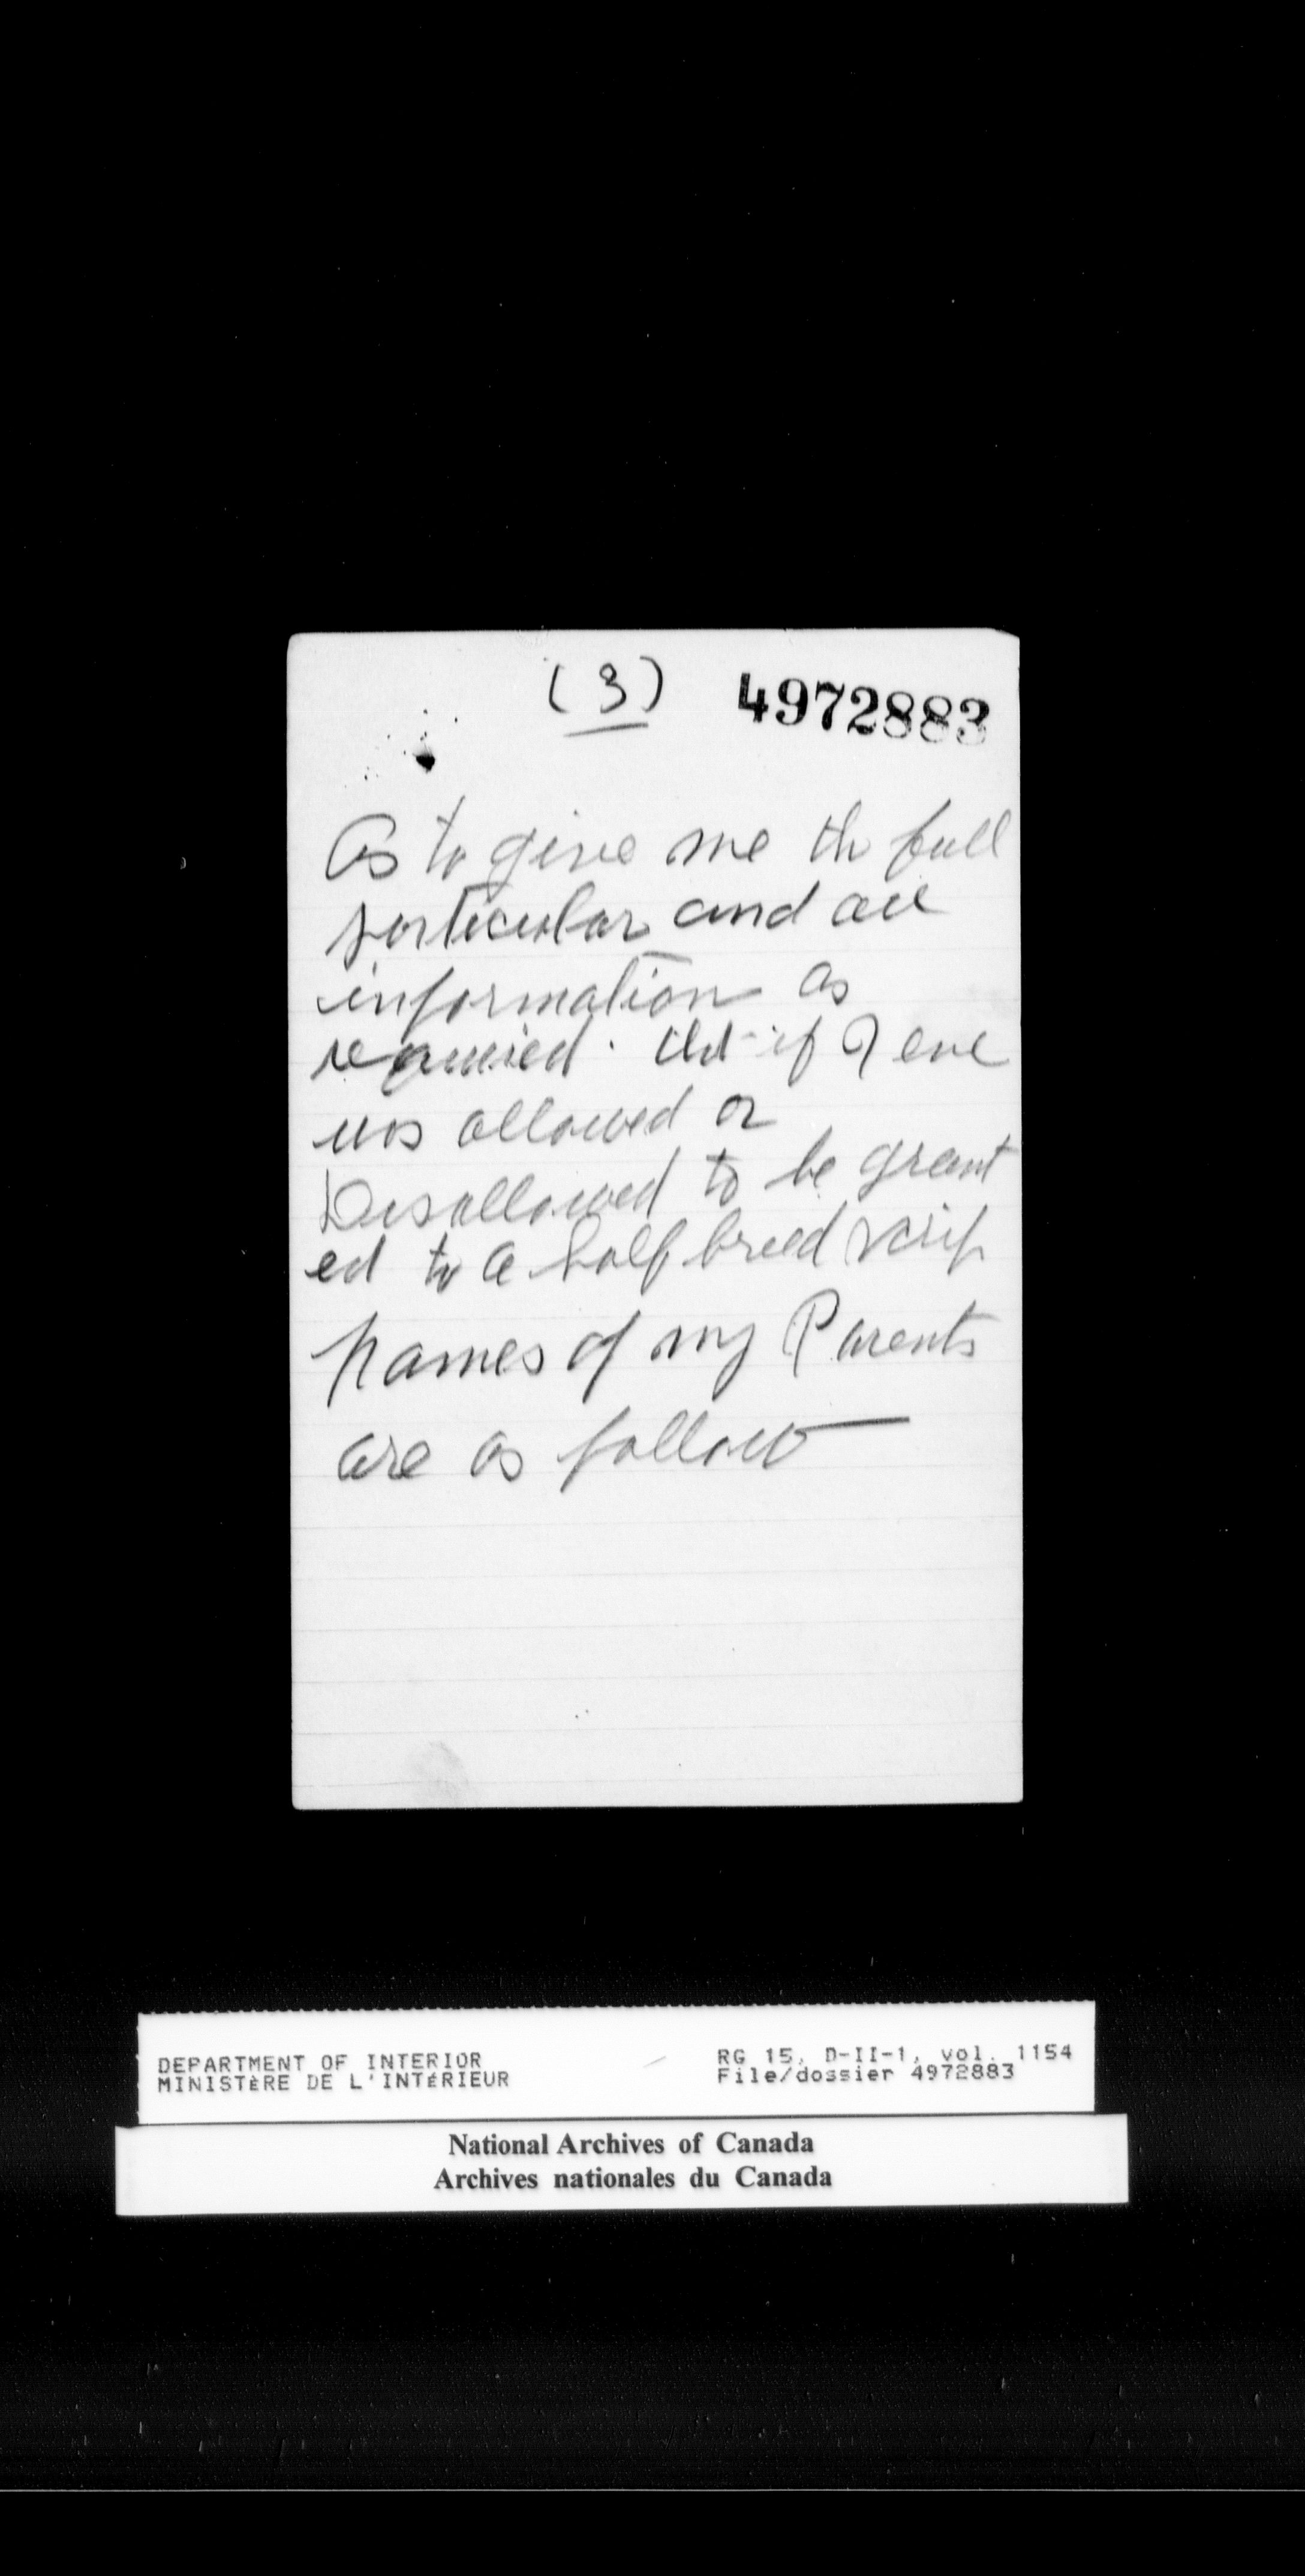 (3) 4972883
As to give me th full
particular and all
information as
required. if I eve
was allowed or
Disallowed to be grant
ed to a half breed scrip
Names of my Parents
are as follow
DEPARTMENT OF INTERIOR
MINISTÈRE DE L'INTÉRIEUR
RG 15, D-II-1, vol. 1154
File/dossier 4972883
National Archives of Canada
Archives nationales du Canada